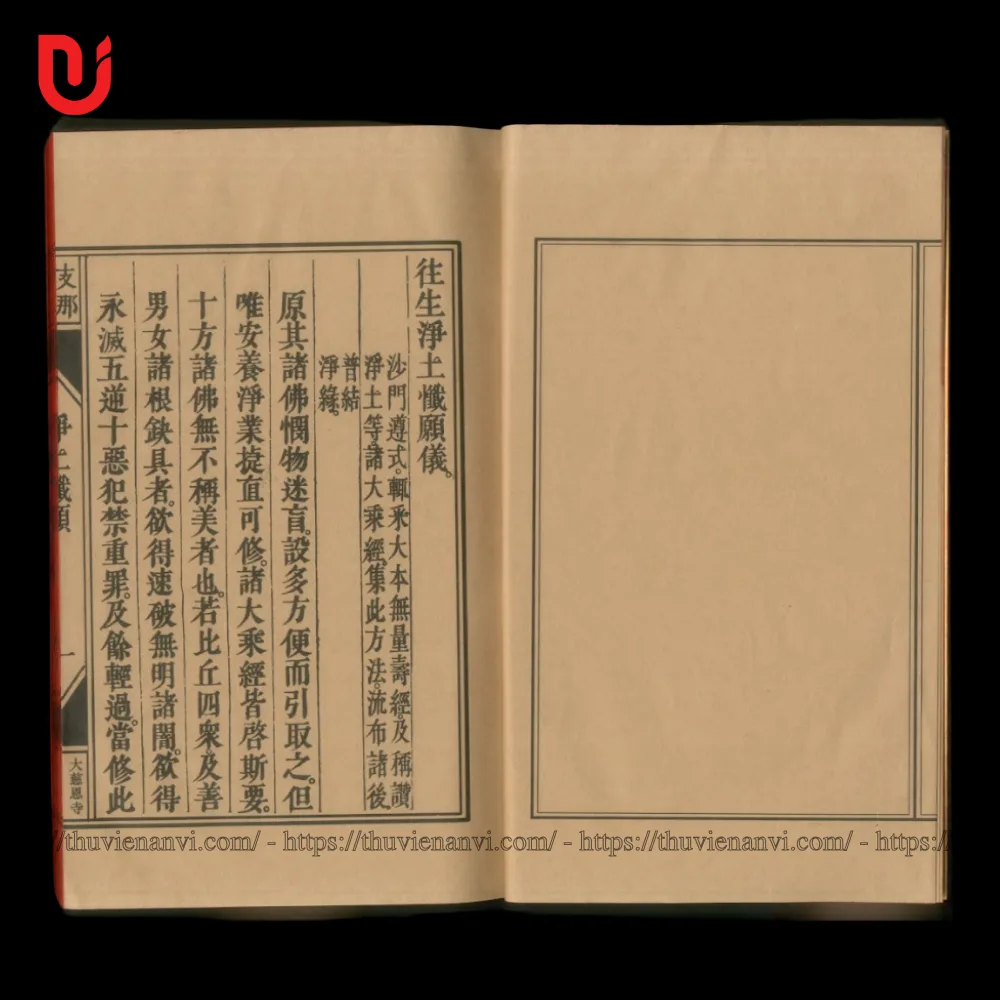 往生淨土懺願儀。
沙門遵式。輒釆大本無量壽經。及稱讚
淨土等諸大乘經。集此方法。流布諸後。
普結
淨緣。
原其諸佛憫物迷盲。設多方便而引取之。但
唯安養淨業捷直可修。諸大乘經皆啓斯要。
十方諸佛無不稱美者也。若比丘四衆。及善
男女諸根缺具者。欲得速破無明諸闇。欲得
永滅五逆十惡犯禁重罪。及餘輕過。當修此
支那
淨土懺願
一
大慈恩寺
https://thuvienanvi.com/ - https://thuvienanvi.com/ - https:/